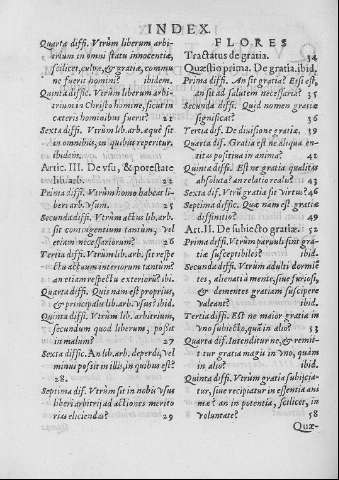 INDEX.
Quarta diffi. Vtrùm liberum arbi-
trium in omni statu innocentiæ,
scilicet, culpæ, & gratiæ, commu
ne fuerit homini? ibidem.
Quinta diffic. Vtrùm liberum arbi-
trium in Christo homine, sicut in
cæteris hominibus fuerit? 21
Sexta diffi. Vtrùm lib. arb. æquè sit
in omnibus, in quibus reperitur.
ibidem.
Artic. III. De vsu, & potestate
lib. arb. 22
Prima diffi. Vtrùm homo habeat li-
beri arb. vsum. 25
Secunda diffi. Vtrùm actus lib. arb.
sit contingentium tantùm, vel
etiam necessariorum? 26
Tertia diffi. Vtrùm lib. arb. sit respe
ctu actuum interiorum tantùm?
an etiam respectu exteriorū? ibi.
Quarta diffi. Quis nam est proprius,
& principalis lib. arb. vsus? ibid.
Quinta diffi. Vtrùm lib. arbitrium,
secundum quod liberum, possit
in malum? 27
Sexta diffic. An lib. arb. deperdi, vel
minui possit in illis, in quibus est?
28.
Septima dif. Vtrùm sit in nobis vsus
liberi arbitrij ad actiones merito
rias eliciendas? 29
FLORES
Tractatus de gratia. 34
Quæstio prima. De gratia. ibid.
Prima diffi. An sit gratia? Et si est,
an sit ad salutem necessaria? 35
Secunda diffi. Quid nomen gratiæ
significat? 36
Tertia dif. De diuisione gratiæ. 39
Quarta dif. Gratia est ne aliqua en-
titas positiua in anima? 42
Quinta diffi. Est ne gratia qualitas
absoluta? an relatio realis? 43
Sexta dif. Vtrū gratia sit virtus? 46
Septima diffic. Quæ nam est gratiæ
diffinitio? 49
Art. II. De subiecto gratiæ. 52
Prima diffi. Vtrùm paruuli sint gra-
tiæ susceptibiles? ibid.
Secunda diffi. Vtrùm adulti dormiē
tes, alienati à mente, siue furiosi,
& dementes gratiam suscipere
valeant? ibid.
Tertia diffi. Est ne maior gratia in
vno subiecto, quā in alio? 53
Quarta dif. Intenditur ne, & remit-
tur gratia magis in vno, quàm
in alio? ibid.
Quinta diffi. Vtrùm gratia subijcia-
tur, siue recipiatur in essentia ani
mæ? an in potentia, scilicet, in
voluntate? 58
Quæ-